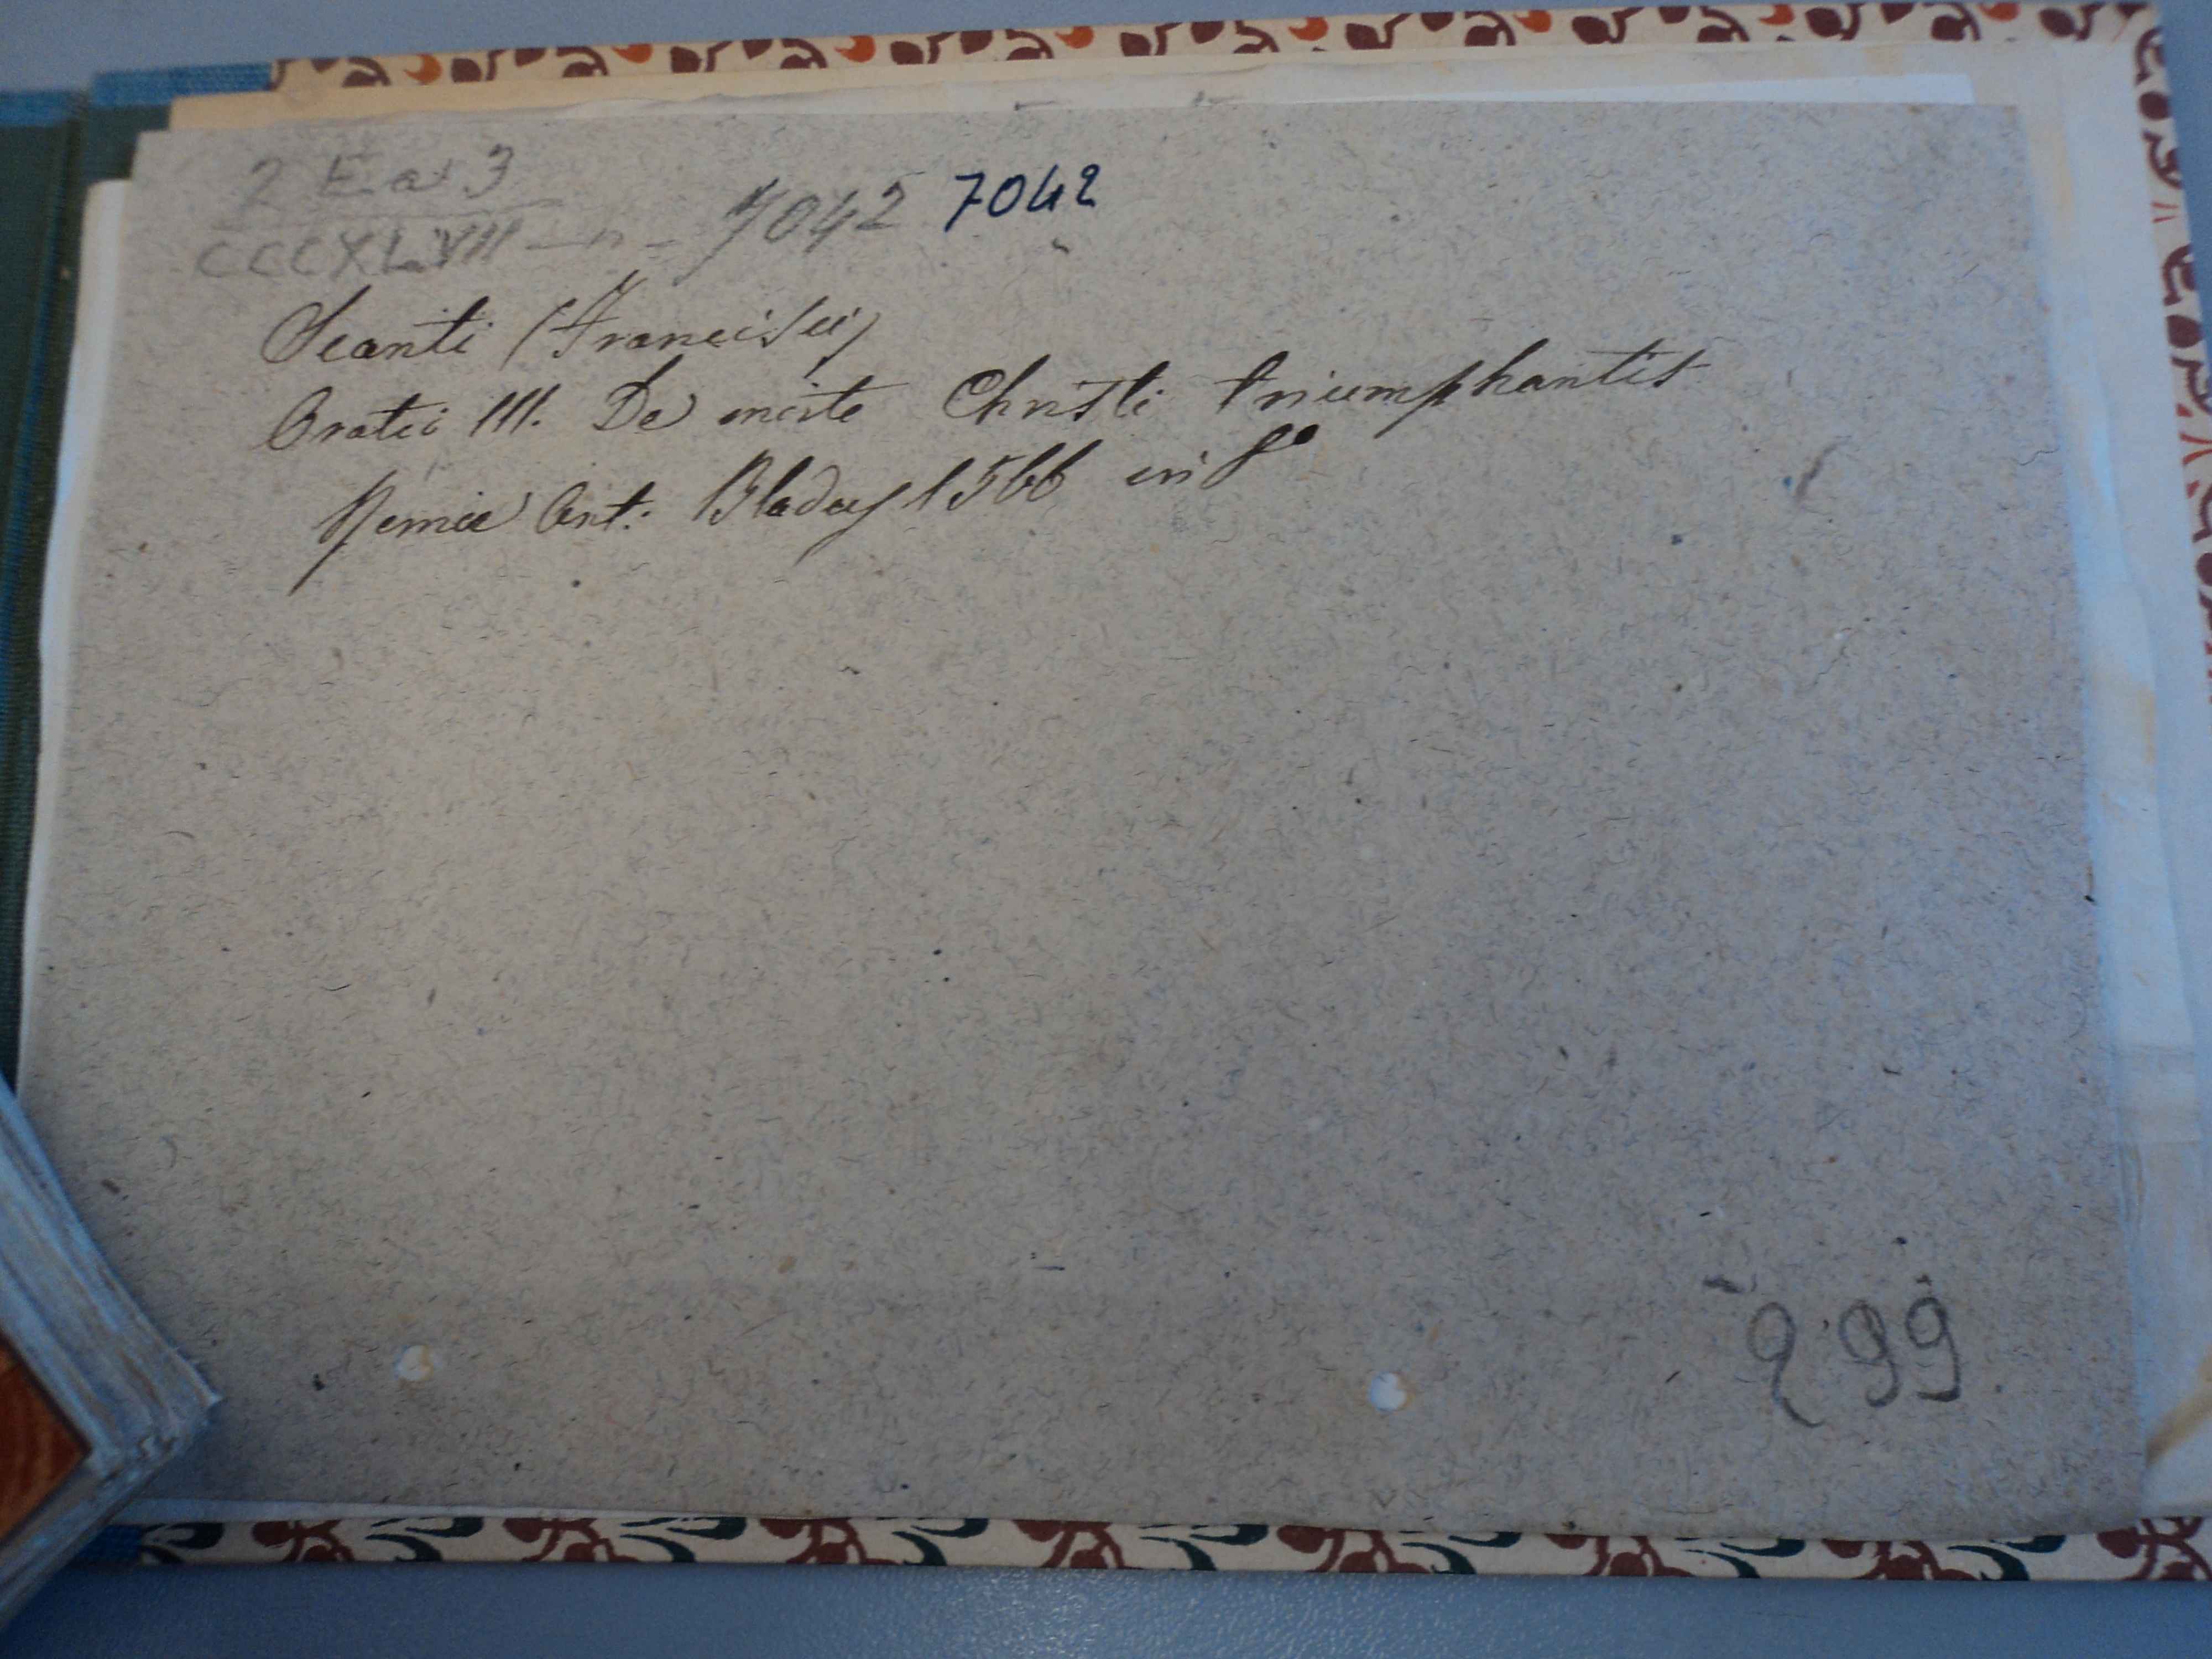 2 E a 3
CCCXLVII - n - 7042 7042
Scanti (Francisci)
Oratio III. De morte Christi triumphantis
Romae Ant: Bladus 1566 in 8°
299